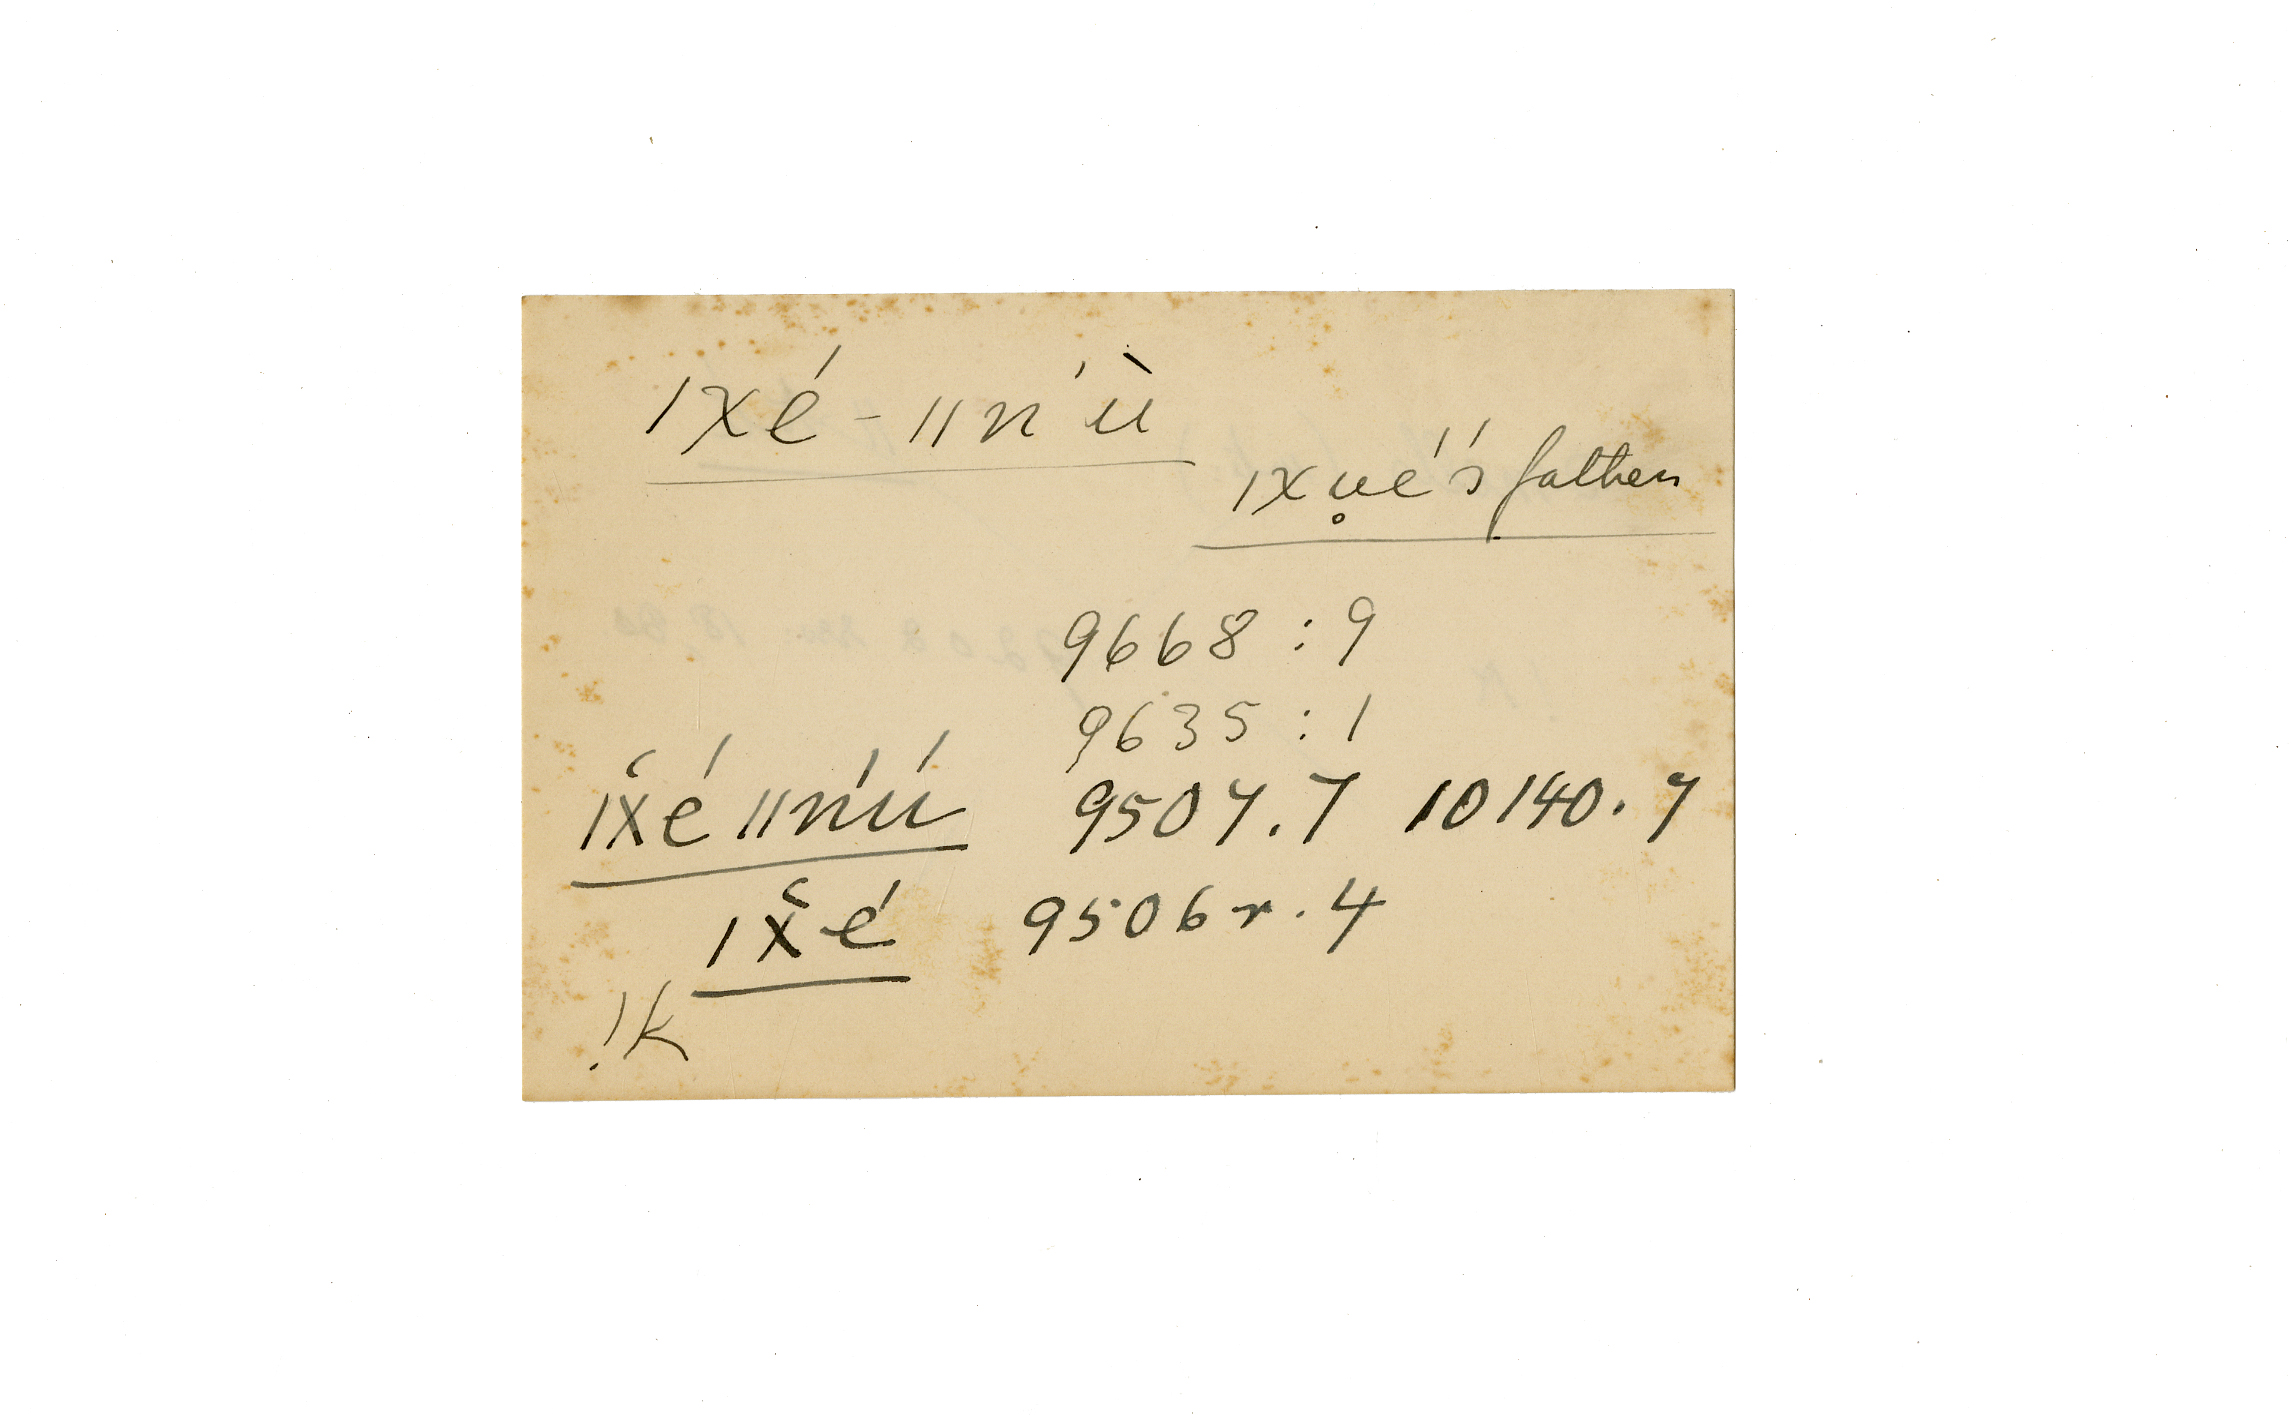 ǀxé-ǁn'ù
ǀxu̥é's father
9668 : 9
9635 : 1
ǀx̌é ǁn'ú 9507.7 10140.7
ǀx̌é 9506r.4
!k